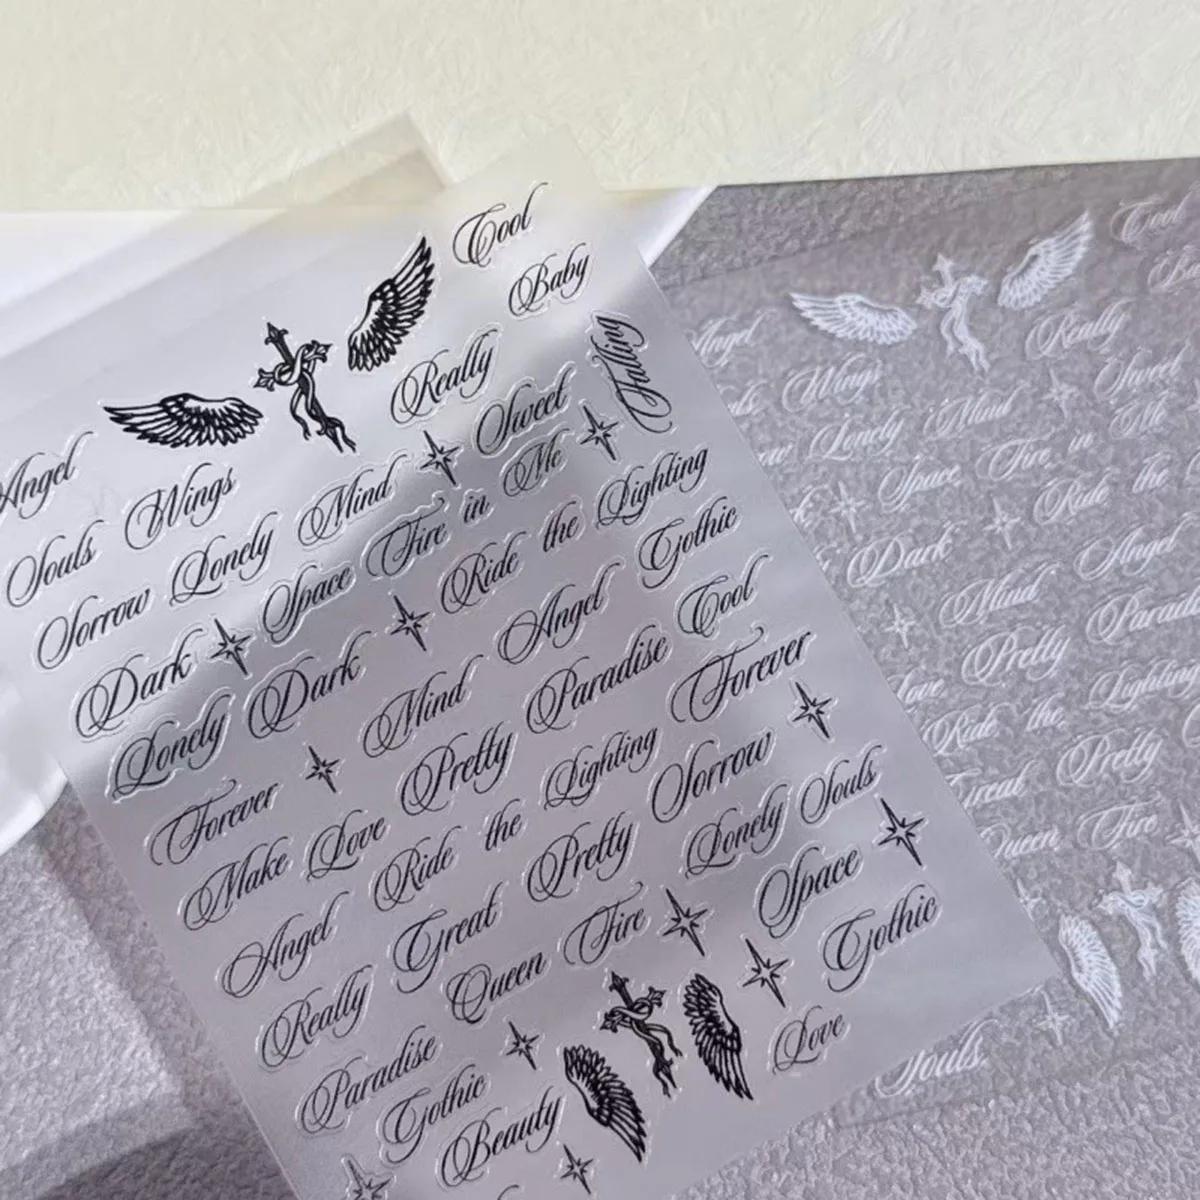 Cool
Baby
Falling
Really
Sweet
Angel
Wings
Mind
Me
Souls
Lonely
Fire in
Sorrow
Space
Ride the Lighting
Dark
Dark
Angel
Gothic
Lonely
Mind
Paradise
Cool
Forever
Pretty
Forever
Make Love
Ride the Lighting
Sorrow
Angel
Great
Pretty
Lonely Souls
Really
Queen Fire
Space
Paradise
Gothic
Gothic
Love
Beauty
Cool
Angel
Really
Wings
Sweet
Lonely Mind
Me
Space Fire in
Ride the
Dark
Angel
Mind
Pretty
Love
Lighting
Ride the
Great
Pretty
Queen Fire
Souls